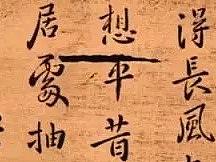 得長風
想平昔
居處抽